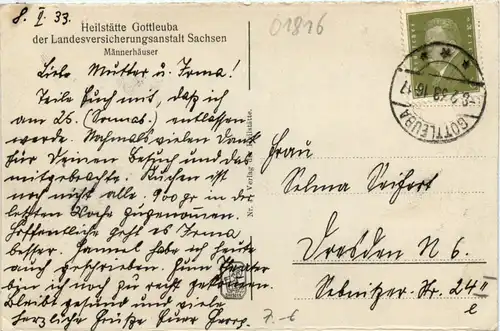 8. II. 33.
Heilstätte Gottleuba
der Landesversicherungsanstalt Sachsen
Männerhäuser
Liebe Mutter u. Irma!
Teile Euch mit, daß ich
am 25. (Sonnab.) entlassen
werde. Nochmals vielen Dank
für Deinen Besuch und den
mitgebrachte. Kuchen ist
noch nicht alle. 900 gr in der
letzten Woche zugenommen.
Hoffentliche geht es Irma
besser. Hammel habe ich heute
auch geschrieben. Zum Theater
bin ich noch zu recht gekommen.
Bleibt gesund und viele
herzliche Grüße Euer
Nr. Verlag der Heilstätte.
01816
GOTTLEUBA
8.2.33.16-17
Frau
Selma Seifert
Dresden N 6.
Sebnitzer-Str. 24 II
7.-6